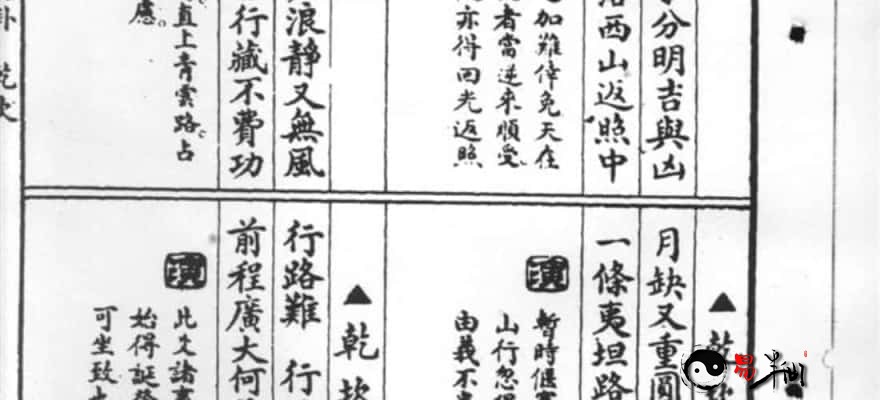 分明吉與凶
西山返照中
加難倖免天在
者當逆來順受
亦得回光返照
浪靜又無風
行藏不費功
直上青雲路占
慮
乾坎
▲乾
月缺又重圓
一條夷坦路
演
暫時偃蹇
山行忽得
由義不
▲乾坎
行路難 行
前程廣大何
演
此爻諸事
始得誕登
可坐致
易半仙